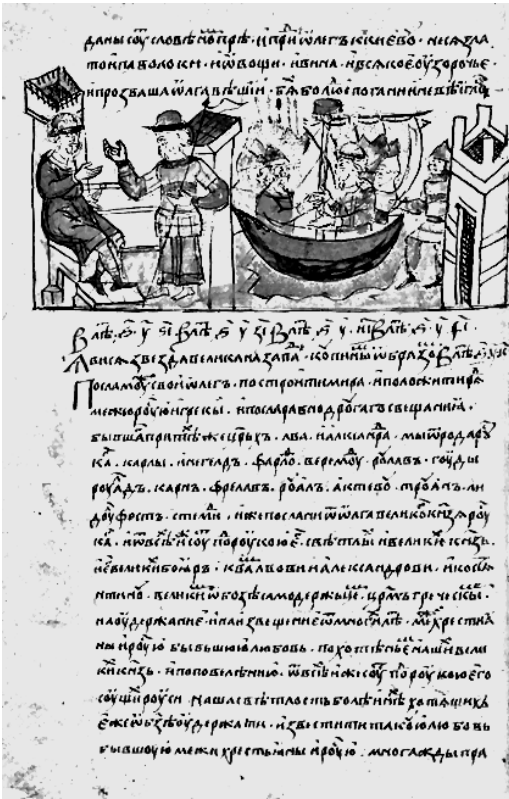 даны соуⷮ словенѡⷨ прѣⷤ · и прїиⷣ ѡлегъ к киевоⷹ · неся зла
то и паволоки · и ѡвощи · и вина · и всякое оузорочье ·
и прозваша ѡлга вѣщїи · бяⷯ бо людїе погани и невѣиглⷪ
В лѣⷮ · ҂ѕ · у · ѕі · В лѣⷮ · ҂ѕ · у · зі В лѣⷮ · ҂ѕ · у · иі В лѣⷮ · ҂ѕ · у · ѳі ·
Явися звезда велика на запаⷣ · копииныⷨ ѡбразоⷨ В лѣⷮ · ҂ѕ · у · к
Посла моуⷤ свои ѡлегъ · построити мира · и положити ряⷣ
межю роусїю и грекы · и посла равно дроугаго свещанїа ·
бывшаⷢ при тѣⷯже црⷭрьхъ · лва · и алеѯанⷣра · мы ѿ рода роуⷭ
каⷢ · карлы · инегелдъ · фарлоⷴ · веремоуⷣ · роулавъ · гоуды
роуалдъ · карнъ · фрелавъ · роуалъ · актевоу · троуанъ · ли
доуⷧ фостъ · стемиⷣ · иже послани ѿ ѡлга великоⷢ кнзя роуⷭ
каⷢ · и ѿ всѣⷯ иⷤ соуⷮ поⷣ роукою еⷢ · свѣтлыⷯ и великиⷯ кнзь ·
и еⷢ великиⷯ бояръ · к ваⷨ лвови и александрови · и костѧⷩ
тиноу · великиⷨ ѡ бозѣ самодержьцеⷨ · црⷭмъ греческыⷨ ·
на оудержанїе · и на извещение ѿ многиⷯ лѣⷮ · меⷤ хрестиа
ны и роусїю бывьшюю любовь · похотѣнїеⷨ нашиⷯ вели
киⷯ кнзь · и по повелѣнию · ѿ всѣⷯ иже соуⷮ поⷣ роукою его
соущиⷯ роуси · наша свѣтлость боле инѣⷯ хотящихъ
еже ѡ бзѣ оудержати · и известити такоую любовь
бывшоую межи хрестьяны и роусїю · многажды пра